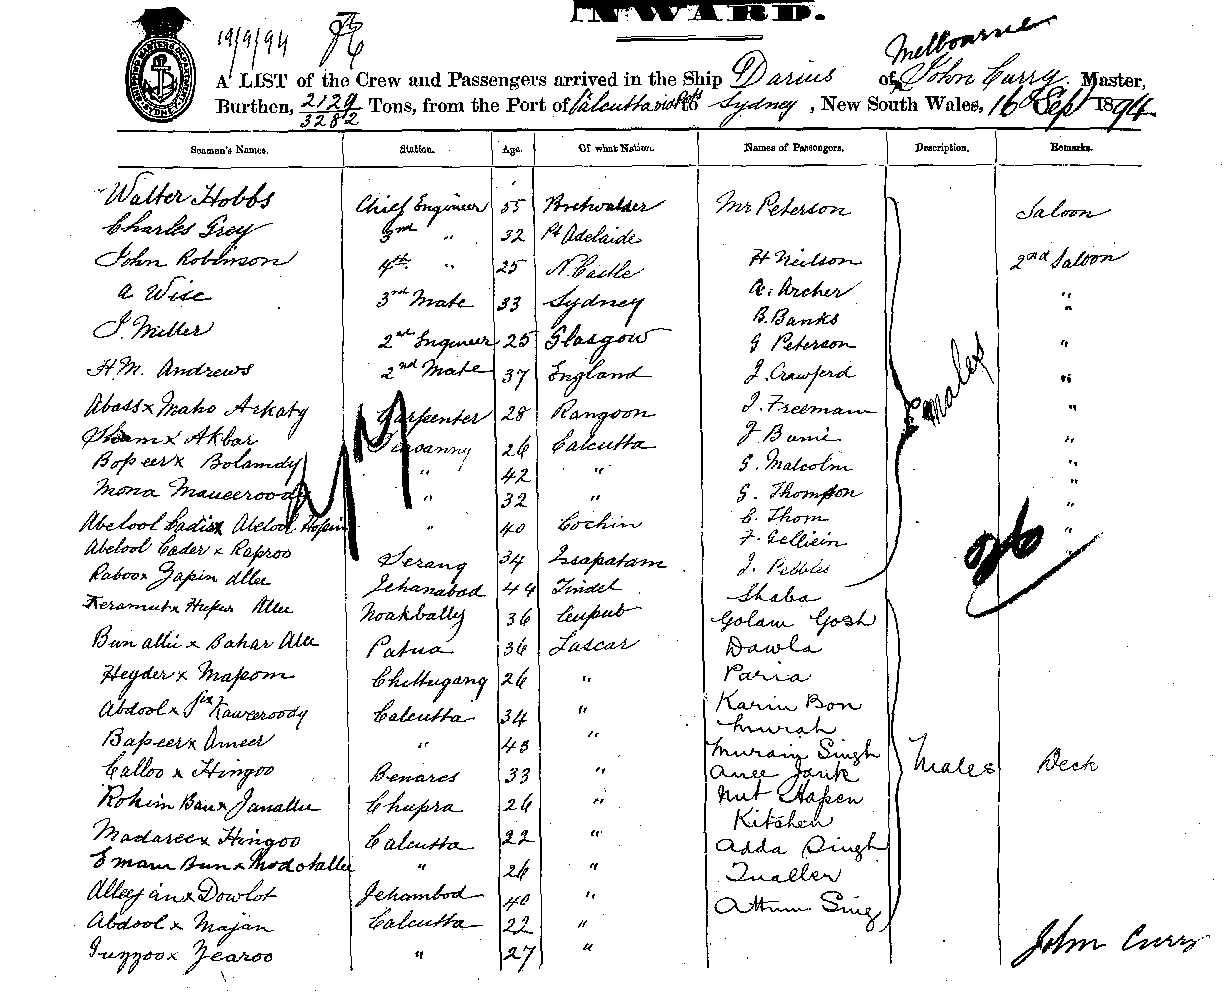 INWARD.
19/9/94
Melbourne
A LIST of the Crew and Passengers arrived in the Ship Darius of John Curry, Master,
Burthen, 2129 Tons, from the Port of Calcutta via to Sydney, New South Wales, 16 Sep 1894.
3282
Seamen's Names. Station. Age. Of what Nation. Names of Passengers. Description. Remarks.
Walter Hobbs Chief Engineer 55 Mr Peterson Saloon
Charles Grey 3rd " 32 Pt Adelaide
John Robinson 4th " 25 N Castle H Neilson 2nd Saloon
A Wise 3rd Mate 33 Sydney A. Archer "
B. Banks "
J. Miller 2nd Engineer 25 Glasgow G Peterson "
H.M. Andrews 2nd Mate 37 England J. Crawford "
Abass x Maho Arkaty Carpenter 28 Rangoon J. Freeman "
x Akbar 26 Calcutta J "
Bopeer x Bolamdy " 42 " G. Malcolm "
Mona Mauceroody " 32 " G. Thompson "
Abelool x Abelool " 40 Cochin C. Thom "
Abelool Cader x Raproo Serang 34 F. "
Raboox Zapin Allee Jehanabad 44 Tindel J. Pebbles
Males
26
Keramut x Allee Noakhally 36 Shaba
Golam Gosh
Bun allii x Bahar Alle Patna 36 Lascar Dawla
Heyder x Mapom Chittugang 26 " Paria
Abdool x Kawceroody Calcutta 34 " Karim Bon
Bapeer x Ameer " 43 " Murain Singh
Calloo x Hingoo Benares 33 " Males Deck
Rohim Bau x Janallee Chupra 26 " Nut Hapen
Kitchen
Madaree x Hingoo Calcutta 22 " Adda Singh
Emam Bun x " 26 " Tualler
Alleyjan x Dowlot Jehambod 40 " Attum Sing
Abdool x Majan Calcutta 22 "
Guzzoo x Zearoo " 27 "
John Curry